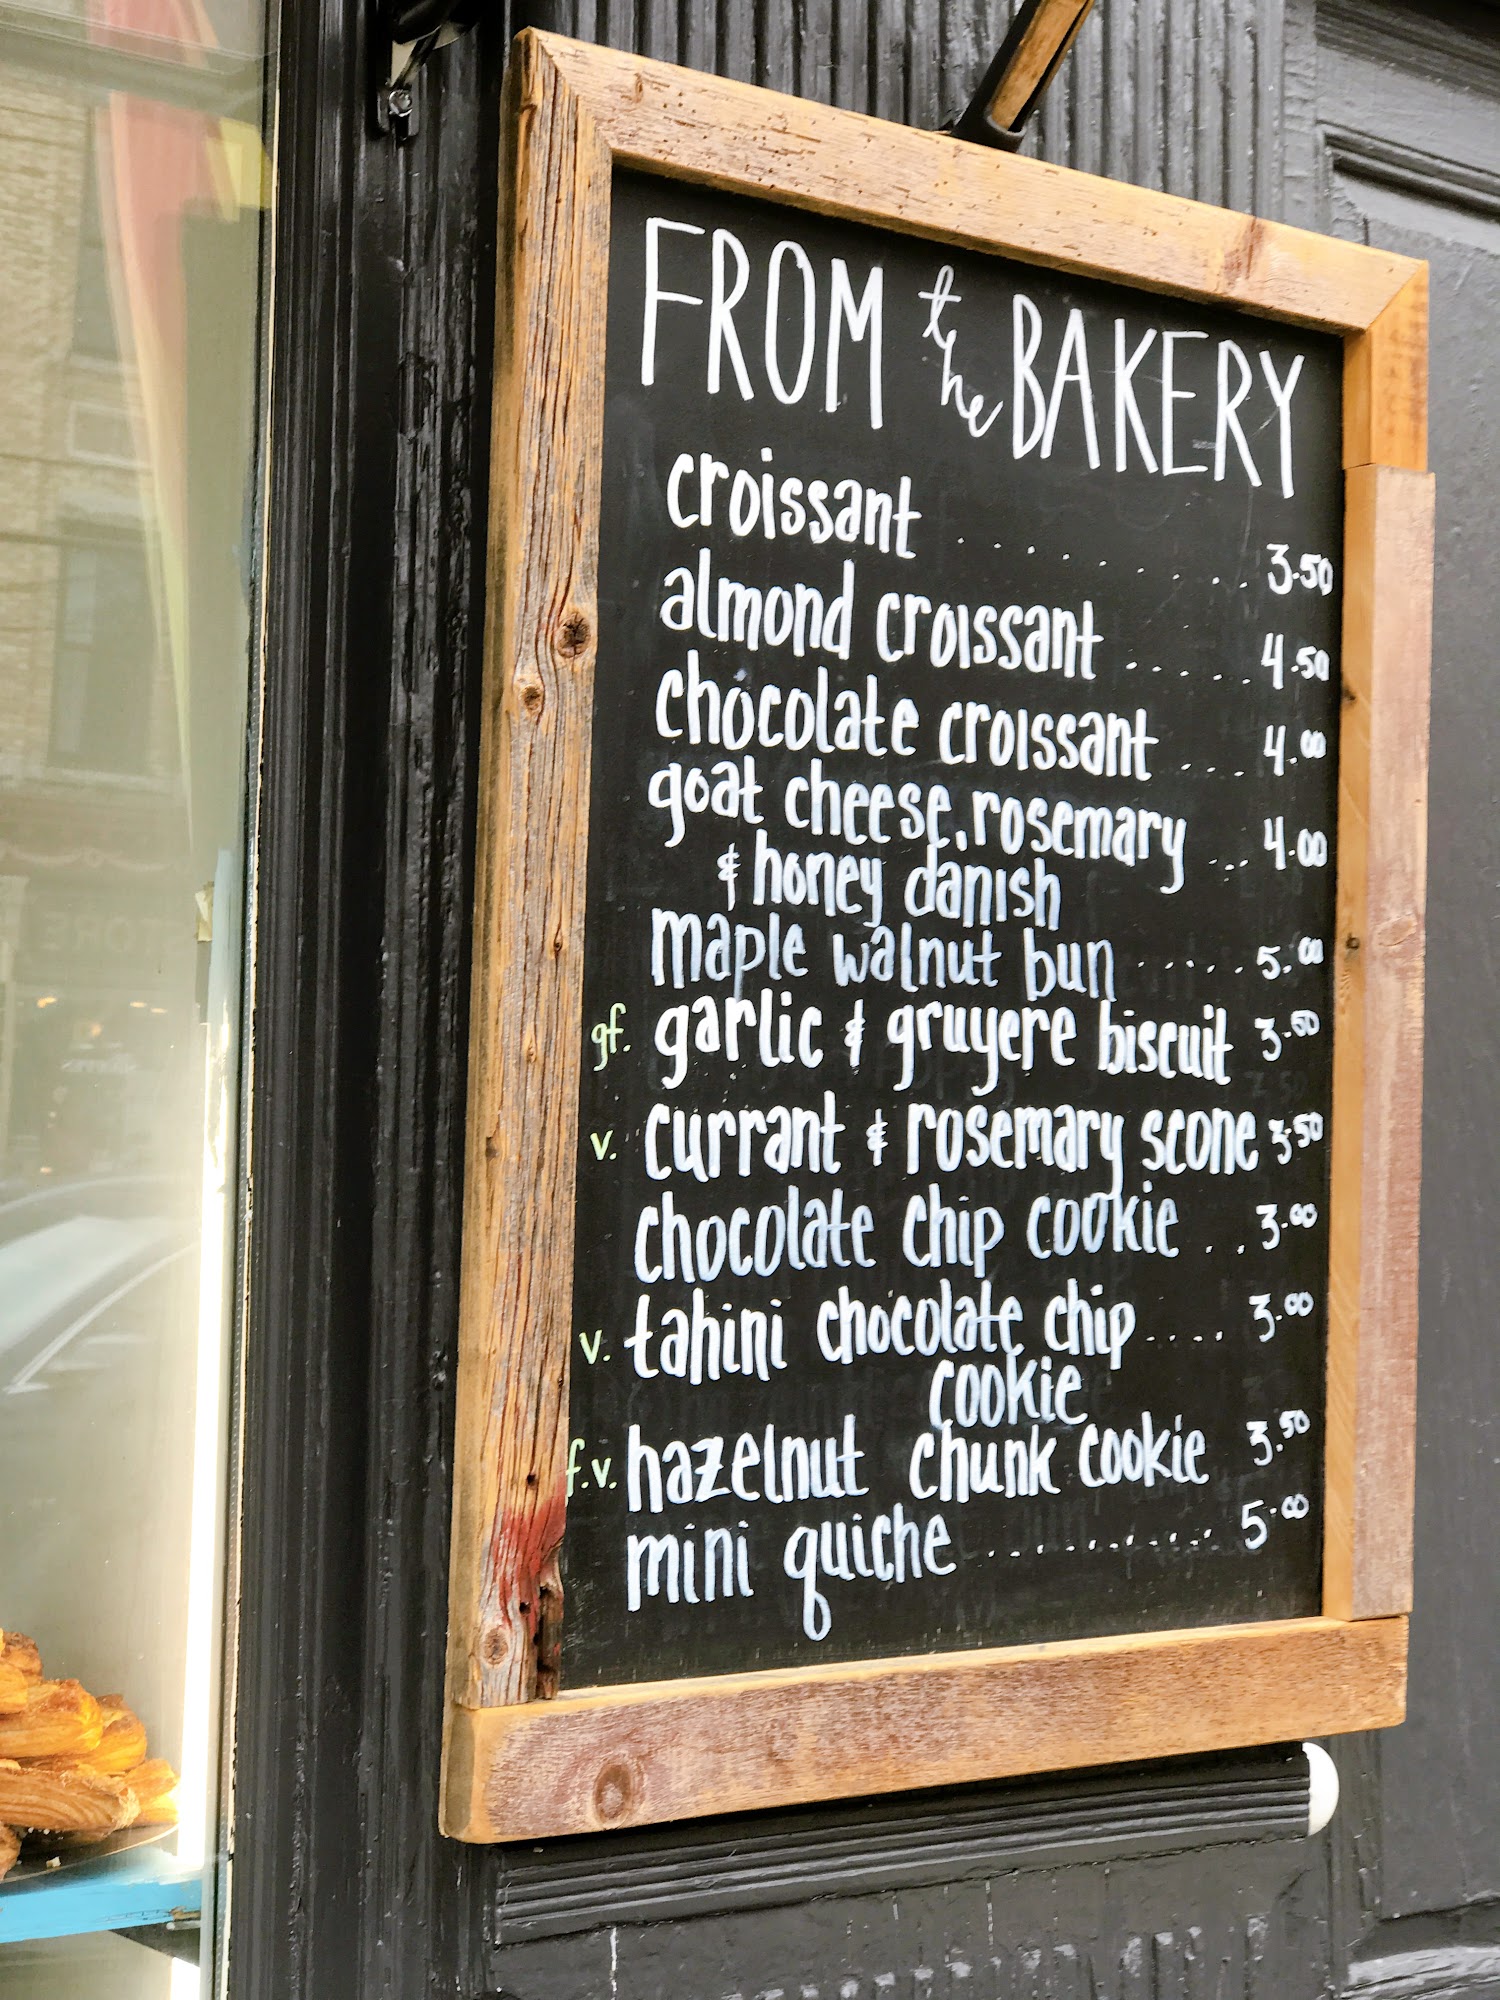 FROM the BAKERY
croissant . . . . . . . . . 3.50
almond croissant ..... 4.50
chocolate croissant .... 4.00
goat cheese, rosemary ... 4.00
& honey danish
maple walnut bun ...... 5.00
gf. garlic & gruyere biscuit 3.50
v. currant & rosemary scone 3.50
chocolate chip cookie . . 3.00
v. tahini chocolate chip .... 3.00
cookie
f.v. hazelnut chunk cookie 3.50
mini quiche .......... 5.00